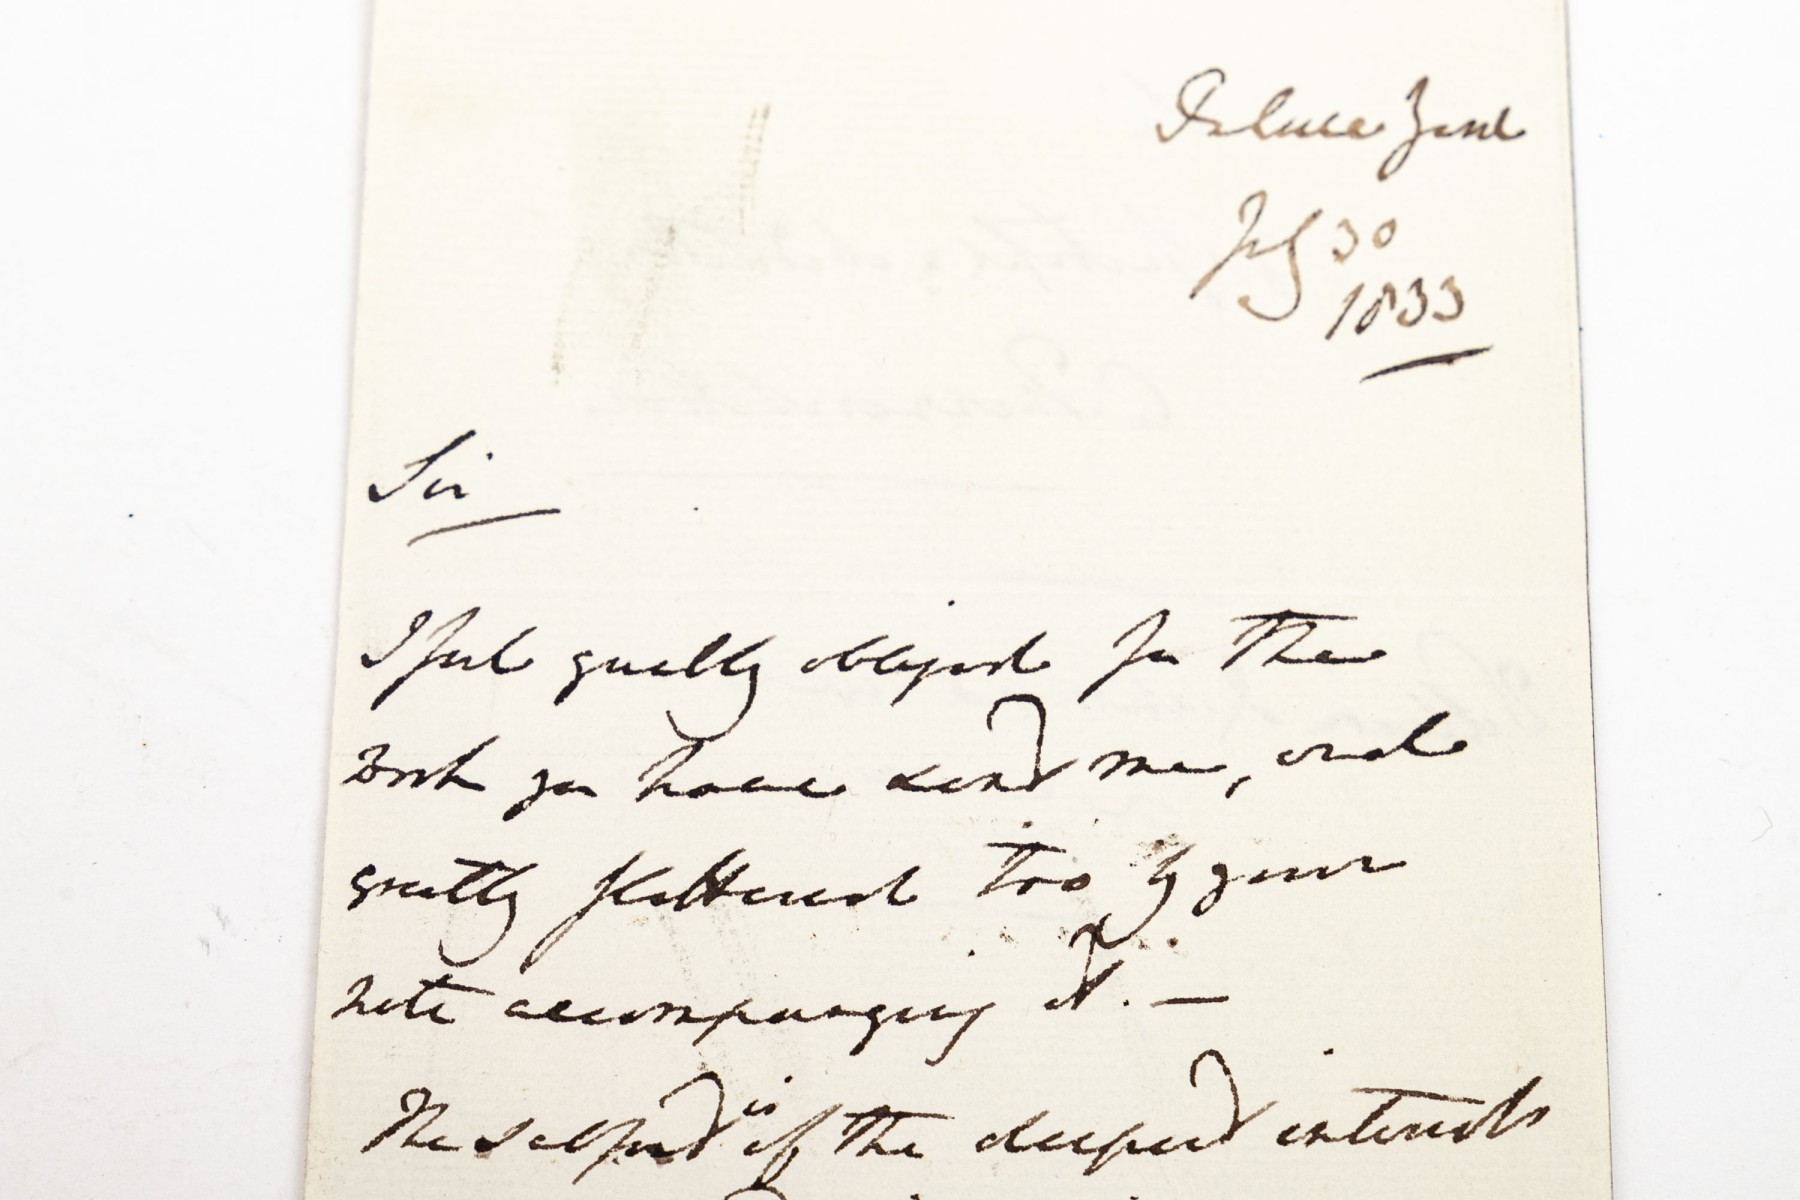 Palace Yard
July 30
1833
Sir
I feel greatly obliged for the
work you have send me, and
greatly flattered too by your
note accompanying it. —
The subject is of the deepest interest